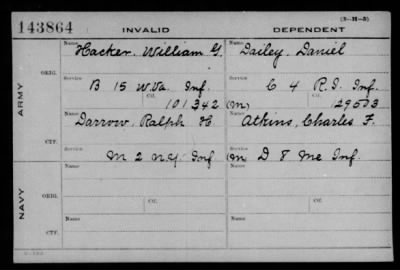 (3-H-5)
143864 INVALID DEPENDENT
Name Hacker, William G. Name Dailey, Daniel
ORIG. Service B 15 W.Va. Inf. Service C 4 R.I. Inf.
ARMY Ctf. 101342 (M) Ctf. 129573
Name Darrow, Ralph H Name Atkins, Charles F.
CTF. Service M 2 N.Y. Inf Service (M) D 8 Me Inf.
Name Name
NAVY ORIG. Ctf. Ctf.
Name Name
CTF.